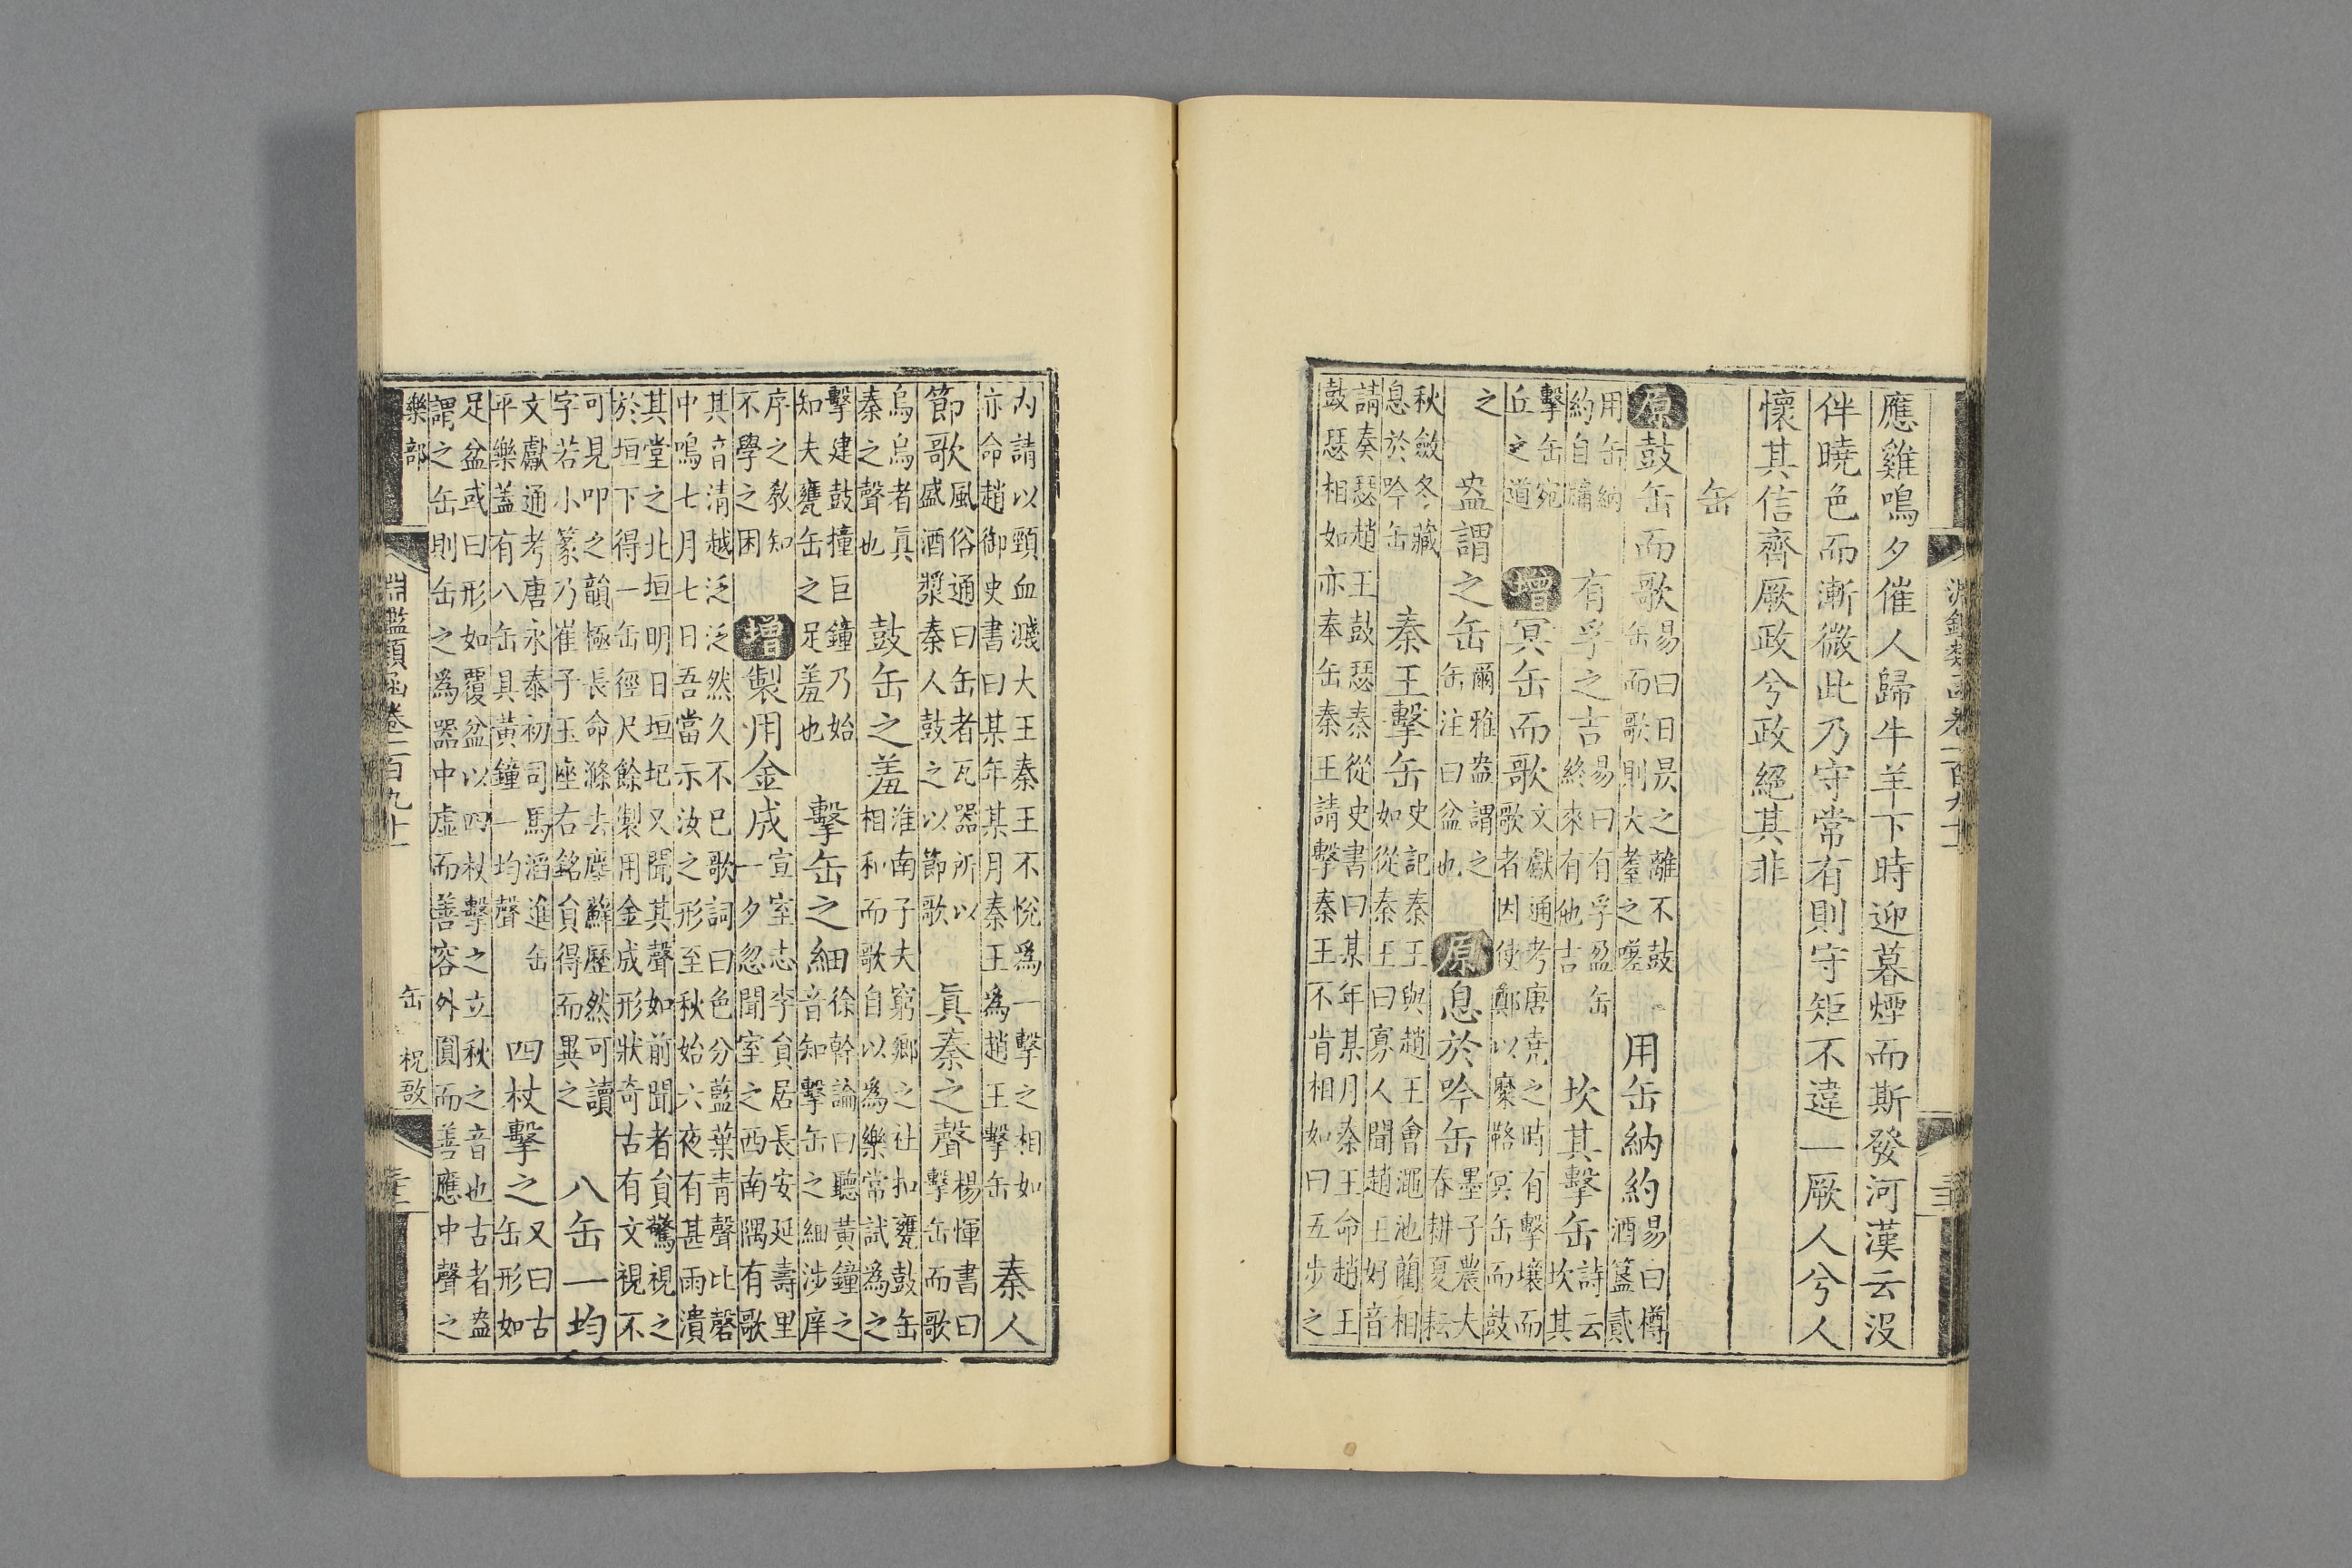 淵鑑類函卷一百九十
應雞鳴夕催人歸牛羊下時迎暮煙而斯發河漢云沒
伴曉色而漸微此乃守常有則守矩不違一厥人兮人
懷其信齊厥政兮政絕其非
缶
原鼓缶而歌易曰日昃之離不鼓缶而歌則大耋之嗟 用缶納約易曰樽酒簋貳
用缶納約自牖 有孚之吉易曰有孚盈缶終來有他吉 坎其擊缶詩云坎其
擊缶宛丘之道 增冥缶而歌文獻通考唐堯之時有擊壤而歌者因使鄭以麋冥缶而鼓
之 盎謂之缶爾雅盎謂之缶注曰盆也 原息於吟缶墨子農大春耕夏耘
秋斂冬藏息於吟缶 秦王擊缶史記秦王與趙王會澠池藺相如從秦王曰寡人聞趙王好音
請奏瑟趙王鼓瑟秦從史書曰某年某月秦王命趙王鼓瑟相如亦奉缶秦王請擊秦王不肯相如曰五步之
內請以頸血濺大王秦王不悅爲一擊之相如亦命趙御史書曰某年某月秦王爲趙王擊缶 秦人
節歌風俗通曰缶者瓦器所以盛酒漿秦人鼓之以節歌 眞秦之聲楊惲書曰擊缶而歌
烏烏者眞秦之聲也 鼓缶之羞淮南子夫窮鄉之社扣甕鼓缶相和而歌自以爲樂常試爲之
擊建鼓撞巨鐘乃始知夫甕缶之足羞也 擊缶之細徐幹論曰聽黃鐘之音知擊缶之細涉庠
序之敎知不學之困 增製用金成宣室志李貟居長安延壽里一夕忽聞室之西南隅有歌
其音清越泛泛然久不已歌詞曰色分藍葉青聲比磬中鳴七月七日吾當示汝之形至秋始六夜有甚雨潰
其堂之北垣明日垣圮又聞其聲如前聞者貟驚視之於垣下得一缶徑尺餘製用金成形狀奇古有文視不
可見叩之韻極長命滌去塵蘚歷然可讀字若小篆乃崔子玉座右銘貟得而異之 八缶一均
文獻通考唐永泰初司馬滔進缶平樂蓋有八缶具黃鐘一均聲 四杖擊之又曰古缶形如
足盆或曰形如覆盆以四杖擊之立秋之音也古者盎謂之缶則缶之爲器中虛而善容外圓而善應中聲之
樂部 淵鑑類函卷一百九十 缶 柷敔